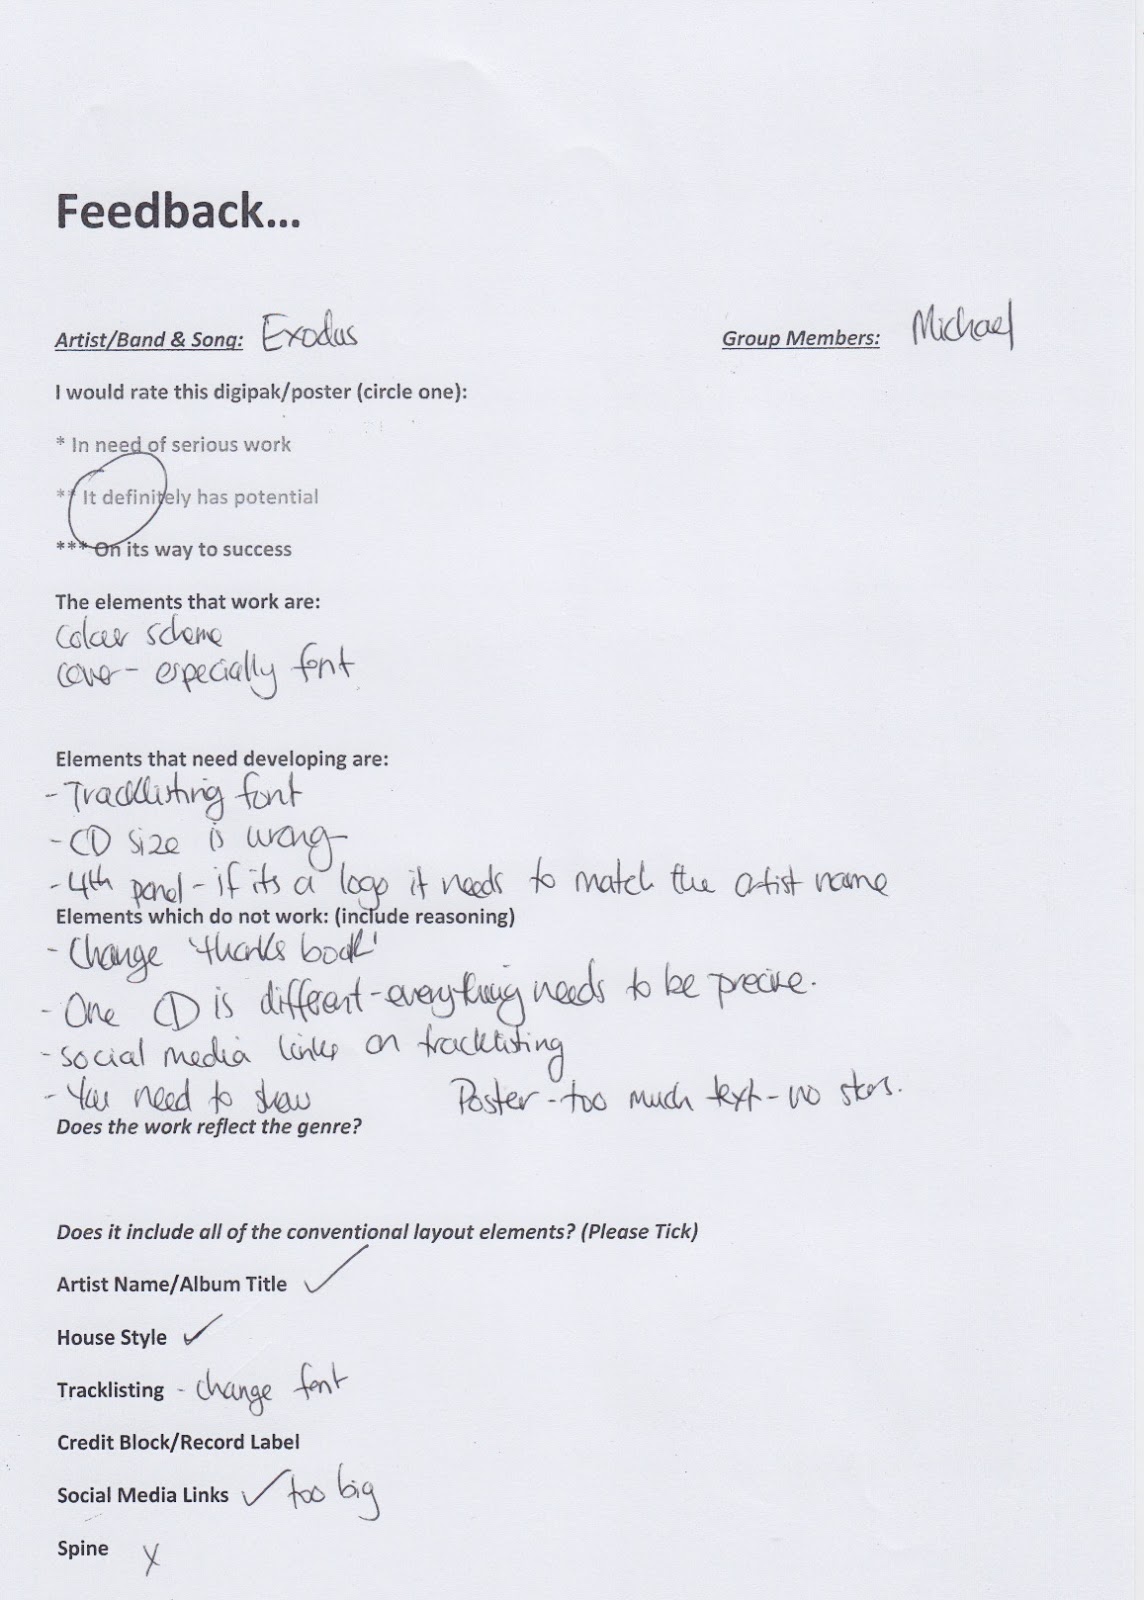 Feedback...
Artist/Band & Song: Exodus Group Members: Michael
I would rate this digipak/poster (circle one):
* In need of serious work
** It definitely has potential
*** On its way to success
The elements that work are:
Colour scheme
cover - especially font
Elements that need developing are:
- Tracklisting font
- CD size is wrong
- 4th panel - if its a logo it needs to match the artist name
Elements which do not work: (include reasoning)
- Change 'thanks book'
- One CD is different - everything needs to be precise.
- social media links on tracklisting
- You need to show Poster - too much text - no stars.
Does the work reflect the genre?
Does it include all of the conventional layout elements? (Please Tick)
Artist Name/Album Title ✓
House Style ✓
Tracklisting - change font
Credit Block/Record Label
Social Media Links ✓ too big
Spine X